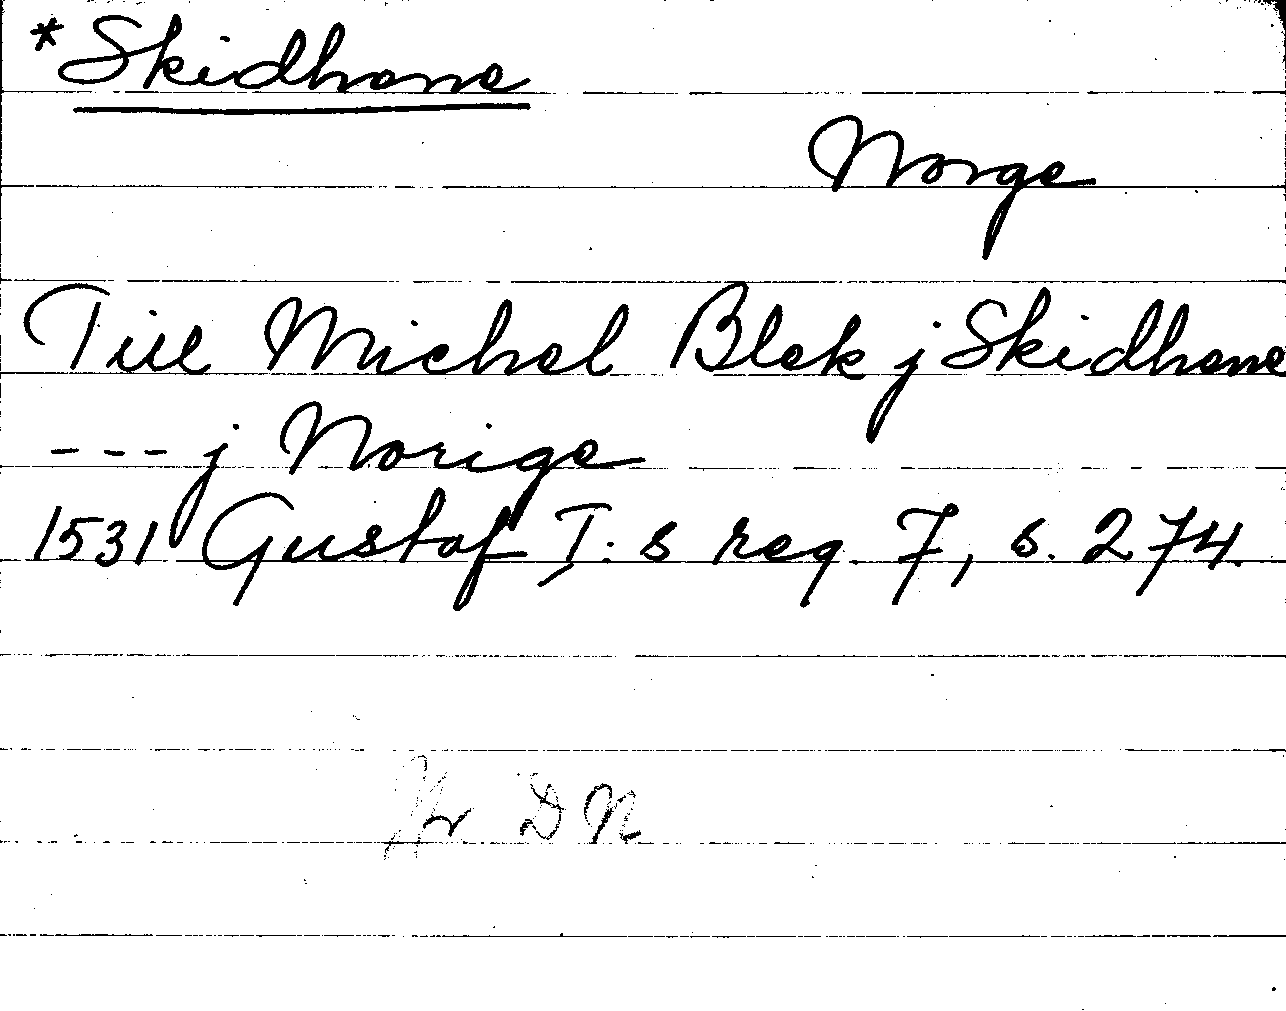 *Skidhone
Norge
Till Michel Blek j Skidhone
--- j Norige
1531 Gustaf I:s reg 7, s. 274.
DN